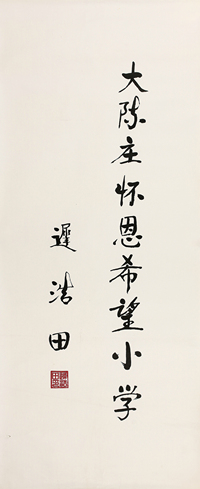 大陈庄怀恩希望小学
遲浩田